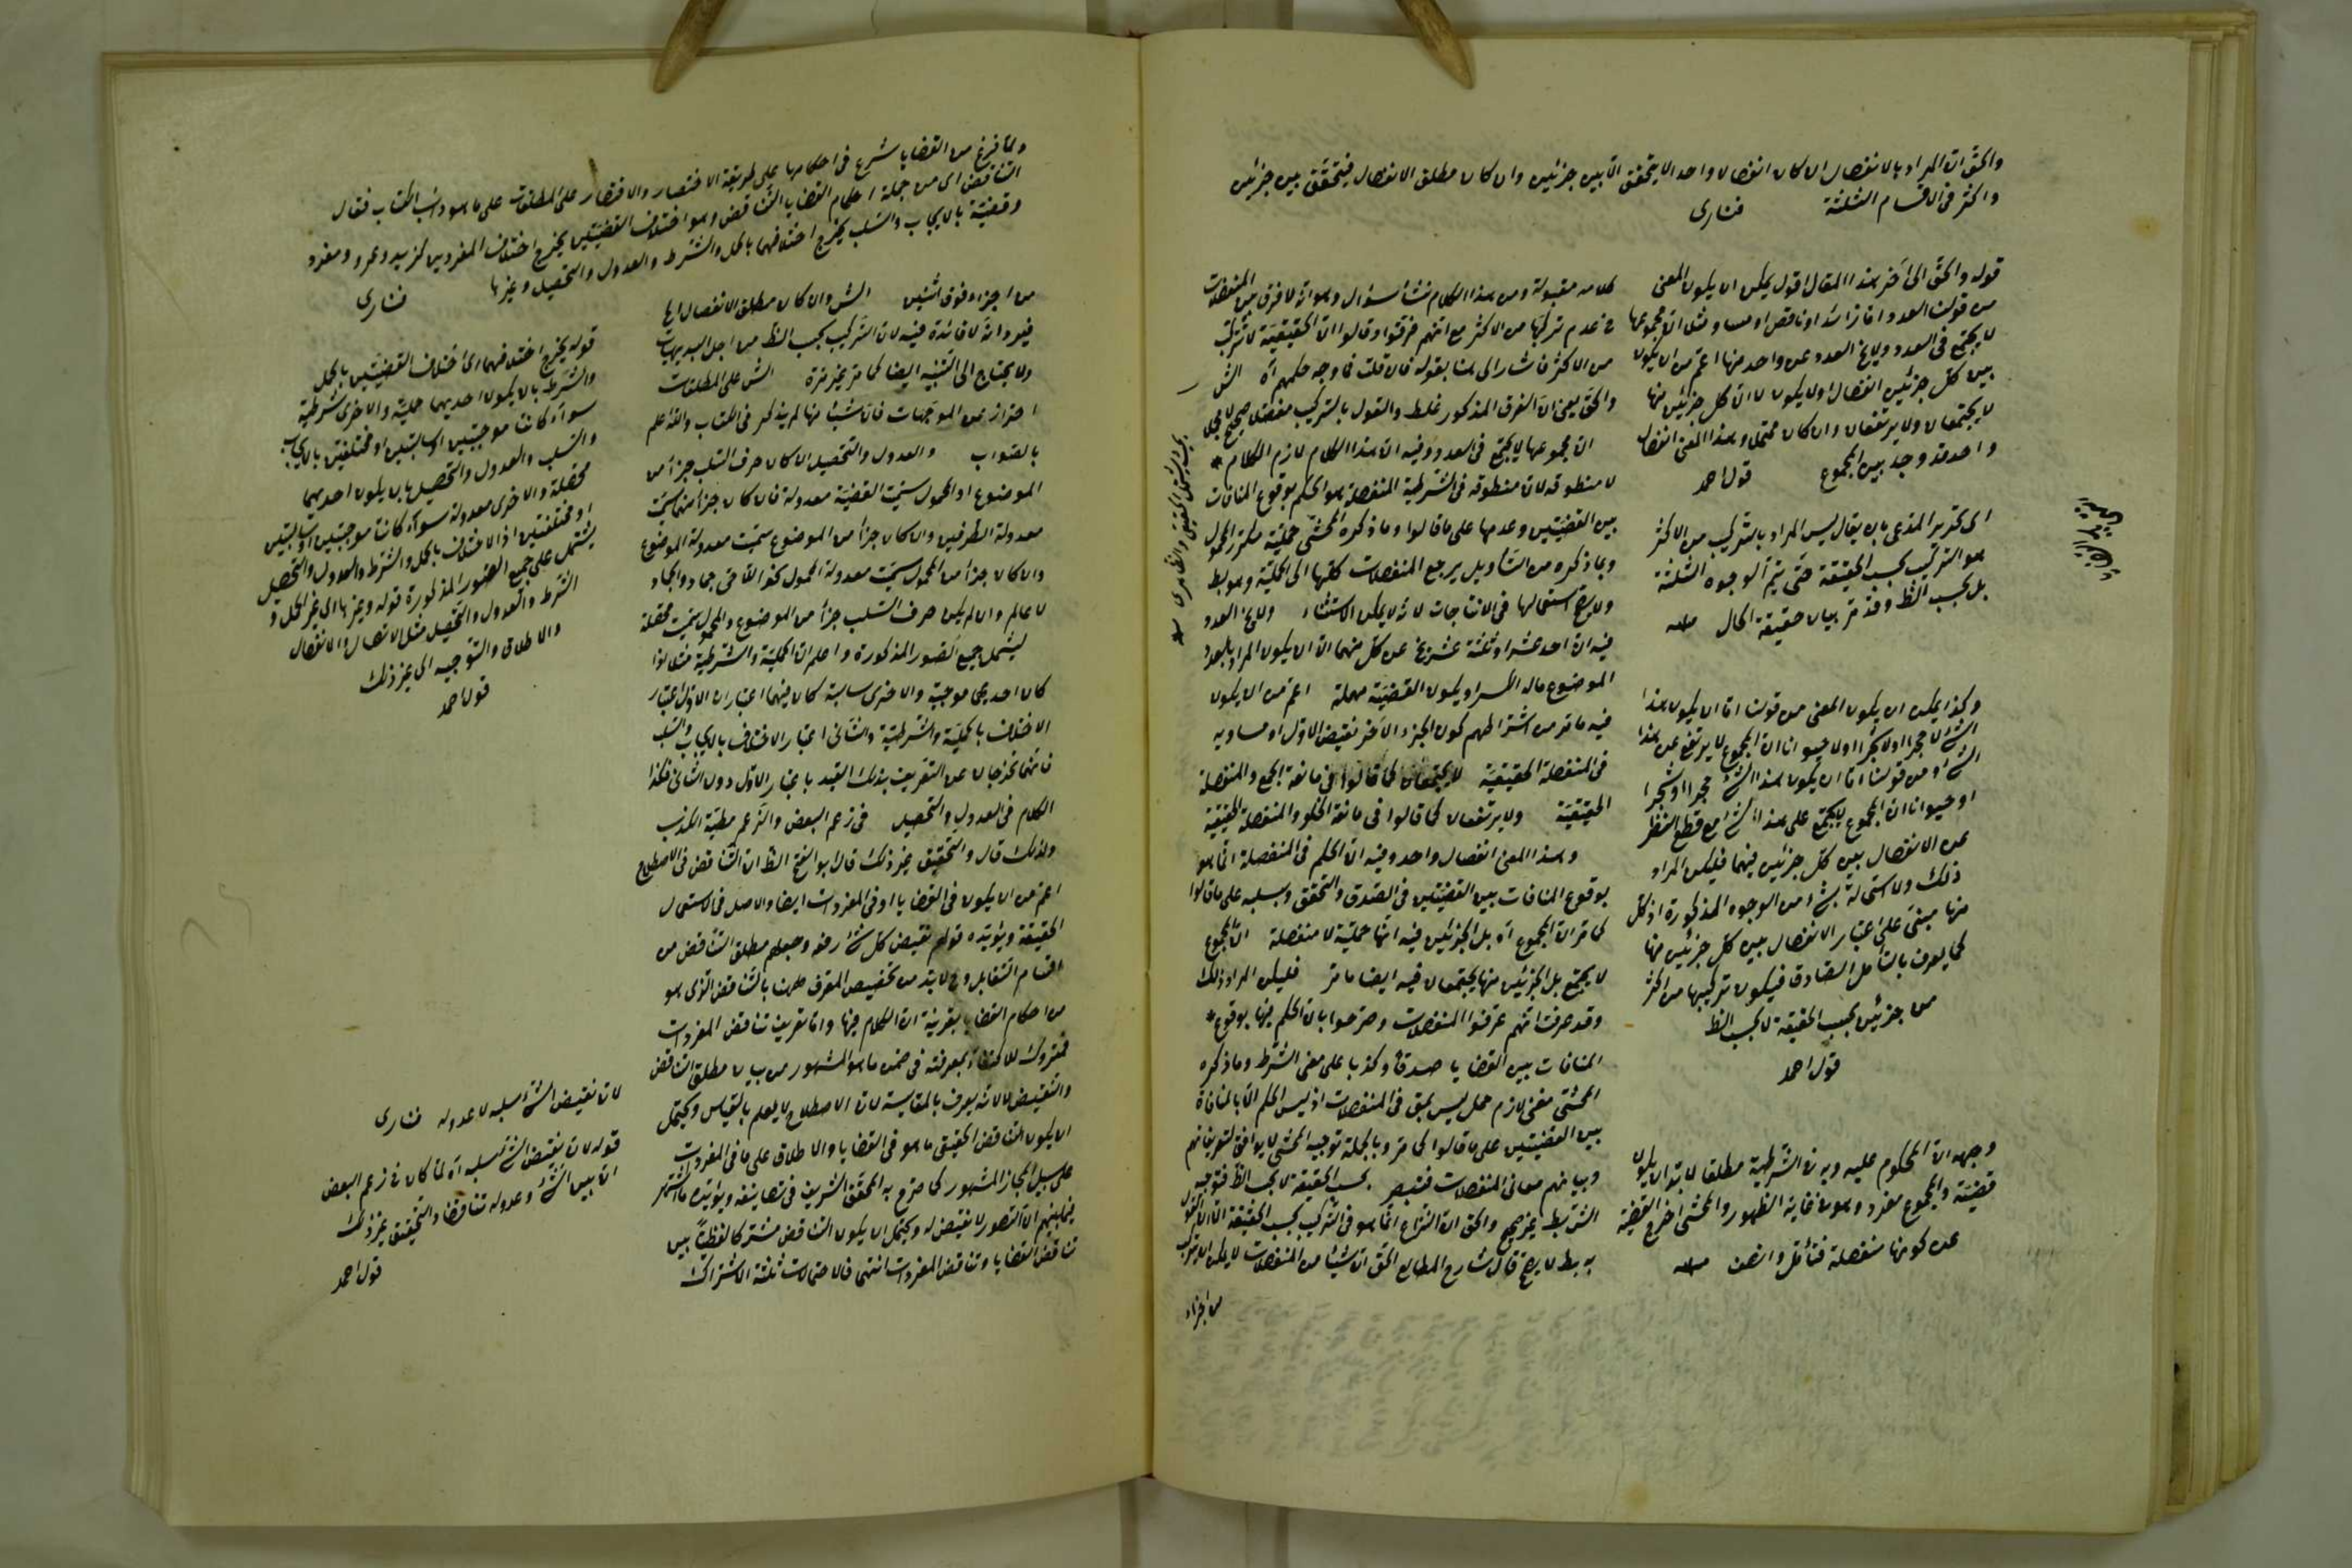 والحق ان المراد بالانفصال ان كان انفصالا واحدا لا يتحقق الا بين جزئين وان كان مطلق الانفصال فيتحقق بين جزئين
واكثر فى الاقسام الثلثة فنارى
قوله والحق الى آخر هذا المقال اقول يمكن ان يكون المعنى
من قولنا العدد اما زائد او ناقص او مساو مثلا ان مجموعها
لا يجتمع فى العدد ولا يخ العدد عن واحد منها اعم من ان يكون
بين كل جزئين انفصال او لا يكون لا ان كل جزئين منها
لا يجتمعان ولا يرتفعان وان كان محتمل وبهذا المعنى انفصال
واحد قد وجد بين المجموع قول احمد
اى تحرير المدعى بان يقال ليس المراد بالتركيب من الاكثر
هو التركيب بحسب الحقيقة حتى يتم الوجوه الثلثة
بل بحسب الظ وقد مر بيان حقيقة الحال منه
وكذا يمكن ان يكون المعنى من قولنا اما ان يكون هذا
الشئ لا حجرا او لا شجرا او لا حيوانا ان المجموع لا يرتفع عن هذا
الشئ ومن قولنا اما ان يكون هذا الشئ حجرا او شجرا
او حيوانا ان المجموع لا يجتمع على هذا الشئ مع قطع النظر
عن الانفصال بين كل جزئين فيهما فليكن المراد
ذلك ولا استحالة بشئ من الوجوه المذكورة اذ كل
منها مبنى على اعتبار الانفصال بين كل جزئين منها
كما يعرف بالتأمل الصادق فيكون تركيبها من اكثر
من جزئين بحسب الحقيقة لا بحسب الظ
قول احمد
وجهه ان المحكوم عليه وبه فى الشرطية مطلقا لا بد ان يكون
قضية والمجموع مفرد وهو فى غاية الظهور والمحشى اخرج القضية
عن كونها منفصلة فتأمل وانصف منه
كلامه مقبولة ومن هذا الكلام نشأ سؤال وهو انه لا فرق بين المنفصلات
فى عدم تركبها من الاكثر مع انهم فرقوا وقالوا ان الحقيقية لا تتركب
من الاكثر فاشار الى هذا بقوله فان قلت فما وجه حكمهم آه الش
والحق يعنى ان الفرق المذكور غلط والقول بالتركيب مفصلا صحيح لا مجملا
ان مجموعها لا يجتمع فى العدد وفيه ان هذا الكلام لازم الكلام *
لا منطوقه لان منطوقه فى الشرطية المنفصلة هو الحكم بوقوع المنافات
بين القضيتين وعدمها على ما قالوا وما ذكره المحشى حملية مكررة المحمول
وبما ذكره من التأويل يرجع المنفصلات كلها الى الحملية وهو بط
ولا يصح استعمالها فى الانتاجات لانه لا يمكن الاستثناء ولا يخ العدد
فيه ان احد عشر او ثلثة عشر يخ عن كل منهما الا ان يكون المراد بالعدد
الموضوع ماله الكسر او يكون القضية مهملة اعم من ان يكون
فيه ما مر من اشتراطهم كون الجزء الآخر نقيض الاول او مساويه
فى المنفصلة الحقيقية لا يجتمعان كما قالوا فى مانعة الجمع والمنفصلة
الحقيقية ولا يرتفعان كما قالوا فى مانعة الخلو والمنفصلة الحقيقية
وبهذا المعنى انفصال واحد وفيه ان الحكم فى المنفصلة انما هو
بوقوع المنافات بين القضيتين فى الصدق والتحقق وسلبه على ما قالوا
كما مر ان المجموع آه بل الجزئين فيه انها حملية لا منفصلة ان المجموع
لا يجتمع بل الجزئين منها يجتمعان فيه ايضا ما مر فليكن المراد ذلك
وقد عرفت انهم عرفوا المنفصلات وصرحوا بان الحكم فيها بوقوع *
المنافات بين القضايا صدقا وكذبا على معنى الشرط وما ذكره
المحشى معنى لازم حمل ليس بحق فى المنفصلات اذ ليس الحكم الا بالمنافاة
بين القضيتين على ما قالوا كما مر وبالجملة توجيه المحشى لا يوافق لتعريفاتهم
وبيانهم معانى المنفصلات فتبصر بحسب الحقيقة لا بحسب الظ فتوجيه
الشرطية غير صحيح والحق ان النزاع انما هو فى التركيب بحسب الحقيقة
به بط لا يصح قال شارح المطالع الحق ان شيئا من المنفصلات لا يمكن ان يتركب
من اجزاء
ولما فرغ من القضايا شرع فى احكامها على طريقة الاختصار والاقتصار على المطلقات على ما هو دأب الكتاب فقال
التناقض اى من جملة احكام القضايا التناقض وهو اختلاف القضيتين يخرج اختلاف المفردين كزيد وعمرو ومفرد
وقضية بالايجاب والسلب يخرج اختلافهما بالحمل والشرط والعدول والتحصيل وغيرها فنارى
من اجزاء فوق اثنين الش وان كان مطلق الانفصال اها
فيه وانه لا فائدة فيه لان التركيب بحسب الظ من اجل البديهيات
ولا يحتاج الى التنبيه ايضا كما مر غير مرة الش على المطلقات
احتراز عن الموجهات فان شيئا منها لم يذكر فى الكتاب والله اعلم
بالصواب والعدول والتحصيل ان كان حرف السلب جزأ من
الموضوع او المحمول سميت القضية معدولة فان كان جزأ منهما سميت
معدولة الطرفين وان كان جزأ من الموضوع سميت معدولة الموضوع
وان كان جزأ من المحمول سميت معدولة المحمول نحو اللاحى جماد والجماد
لا عالم وان لم يكن حرف السلب جزأ من الموضوع والمحمول سميت محصلة
ليشمل جميع الصور المذكورة واعلم ان الحملية والشرطية مثلا اذا
كان احديهما موجبة والاخرى سالبة كان فيهما اعتباران الاول اعتبار
الاختلاف بالحملية والشرطية والثانى اعتبار الاختلاف بالايجاب والسلب
فانهما تخرجان عن التعريف بذلك القيد باعتبار الاول دون الثانى فكذا
الكلام فى العدول والتحصيل فى زعم البعض والزعم مطية الكذب
ولذلك قال والتحقيق غير ذلك قال ابو الفتح الظ ان التناقض فى الاصطلاح
اعم من ان يكون فى القضايا او فى المفردات ايضا والاصل فى الاستعمال
الحقيقة ويؤيده قولهم نقيض كل شئ رفعه وجعلهم مطلق التناقض من
اقسام التقابل وح لا بد من تخصيص المعرف ههنا بالتناقض الذى هو
من احكام القضايا بقرينة ان الكلام فيها واما تعريف تناقض المفردات
فمتروك للاكتفاء بمعرفته فى ضمن ما هو المشهور من بيان مطلق التناقض
والنقيض لا لانه يعرف بالمقايسة لان الاصطلاح لا يعلم بالقياس ويحتمل
ان يكون التناقض الحقيقى ما هو فى القضايا والاطلاق على ما فى المفردات
على سبيل المجاز المشهور كما صرح به المحقق الشريف فى تصانيفه ويؤيده ما اشتهر
فيما بينهم ان التصور لا نقيض له ويحتمل ان يكون التناقض مشتركا لفظيا بين
تناقض القضايا وتناقض المفردات انتهى فالاحتمالات ثلثة الاشتراك
قوله يخرج اختلافهما اى اختلاف القضيتين بالحمل
والشرط بان يكون احديهما حملية والاخرى شرطية
سواء كانتا موجبتين او سالبتين او مختلفتين بالايجاب
والسلب والعدول والتحصيل بان يكون احديهما
محصلة والاخرى معدولة سواء كانتا موجبتين او سالبتين
او مختلفتين اذ الاختلاف بالحمل والشرط والعدول والتحصيل
يشتمل على جميع الصور المذكورة قوله وغيرها اى غير الحمل و
الشرط والعدول والتحصيل مثل الاتصال والانفصال
والاطلاق والتوجيه الى غير ذلك
قول احمد
لان نقيض الشئ سلبه لا عدوله فنارى
قوله لان نقيض الشئ سلبه آه لما كان فى زعم البعض
ان بين الشئ وعدوله تناقضا والتحقيق غير ذلك
قول احمد